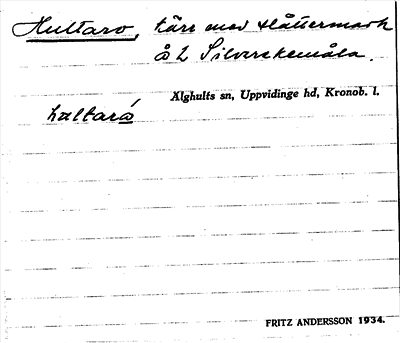 Hultaro, kärr med slåttermark
å 2 Silverekemåla.
Älghults sn, Uppvidinge hd, Kronob. l.
hultarå
FRITZ ANDERSSON 1934.